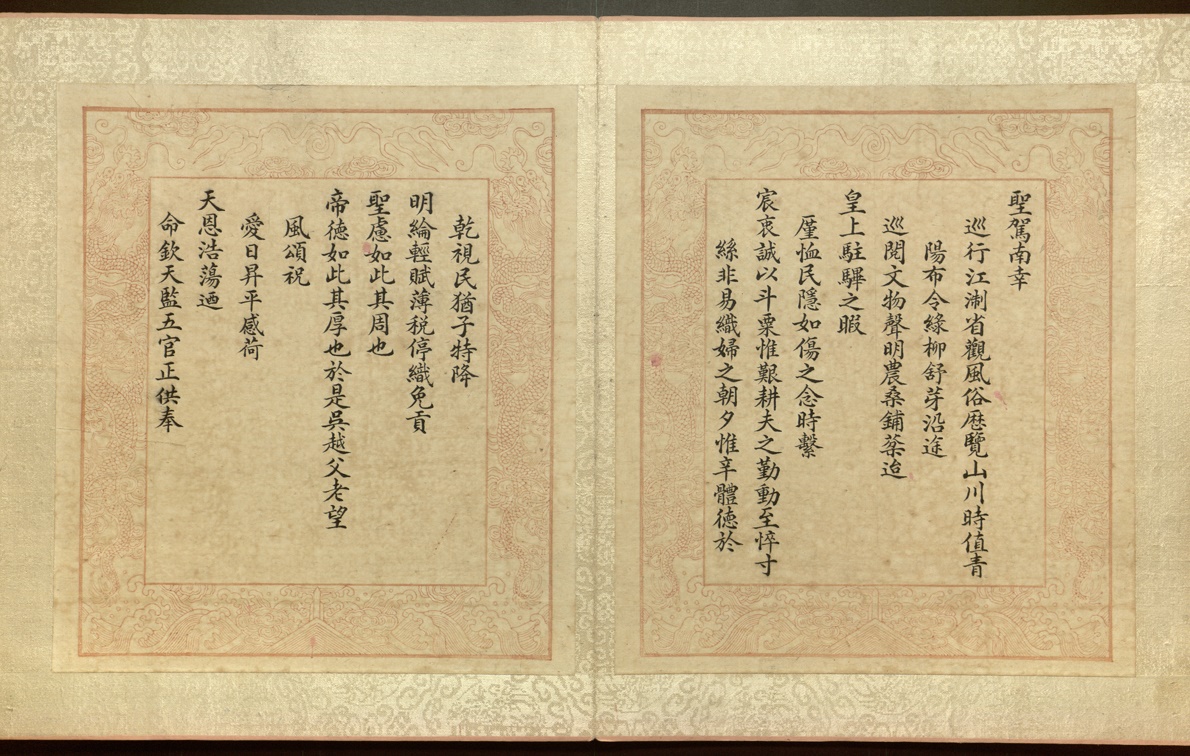 聖駕南幸
巡行江淛省觀風俗歷覽山川時值青
陽布令綠柳舒芽沿途
巡閱文物聲明農桑鋪菜迨
皇上駐驆之暇
厪恤民隱如傷之念時繫
宸衷誠以斗粟惟艱耕夫之勤動至悴寸
絲非易織婦之朝夕惟辛體德於
乾視民猶子特降
明綸輕賦薄稅停織免貢
聖慮如此其周也
帝德如此其厚也於是吳越父老望
風頌祝
愛日昇平感荷
天恩浩蕩迺
命欽天監五官正供奉